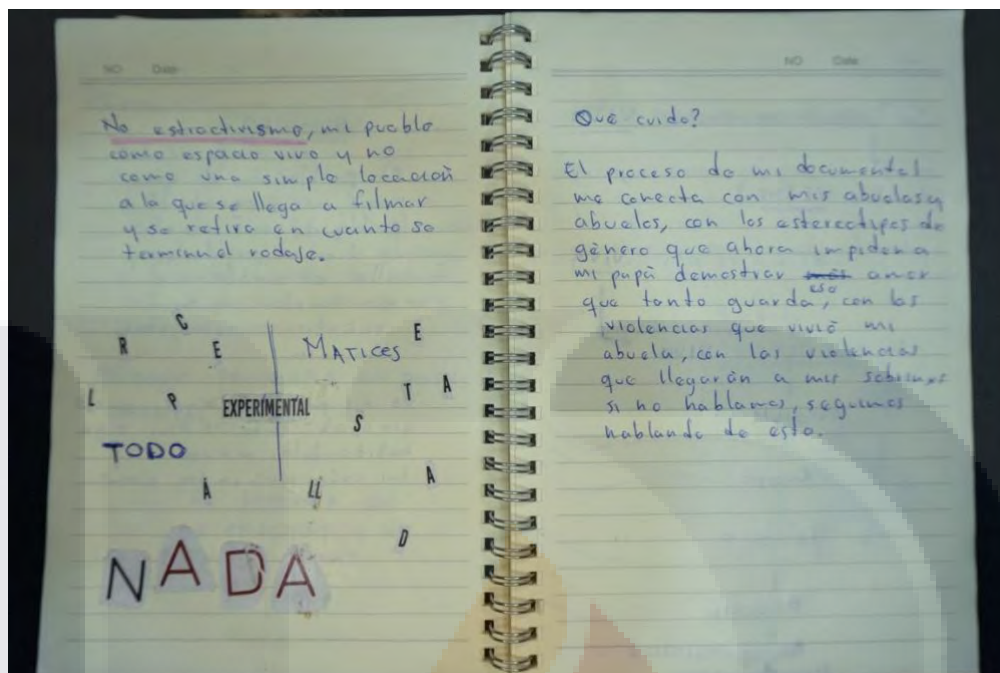 NO Date
No estractivismo, mi pueblo
como espacio vivo y no
como una simple locación
a la que se llega a filmar
y se retira en cuanto se
termina el rodaje.
G
R E MATICES E
L P EXPERIMENTAL T A
S
TODO
A LL A
D
NADA
NO Date
Que cuido?
El proceso de mi documental
me conecta con mis abuelas y
abuelos, con los estereotipos de
género que ahora impiden a
mi papá demostrar eso amor
que tanto guarda, con las
violencias que vivió mi
abuela, con las violencias
que llegarán a mis sobrinxs
si no hablamos, seguimos
hablando de esto.